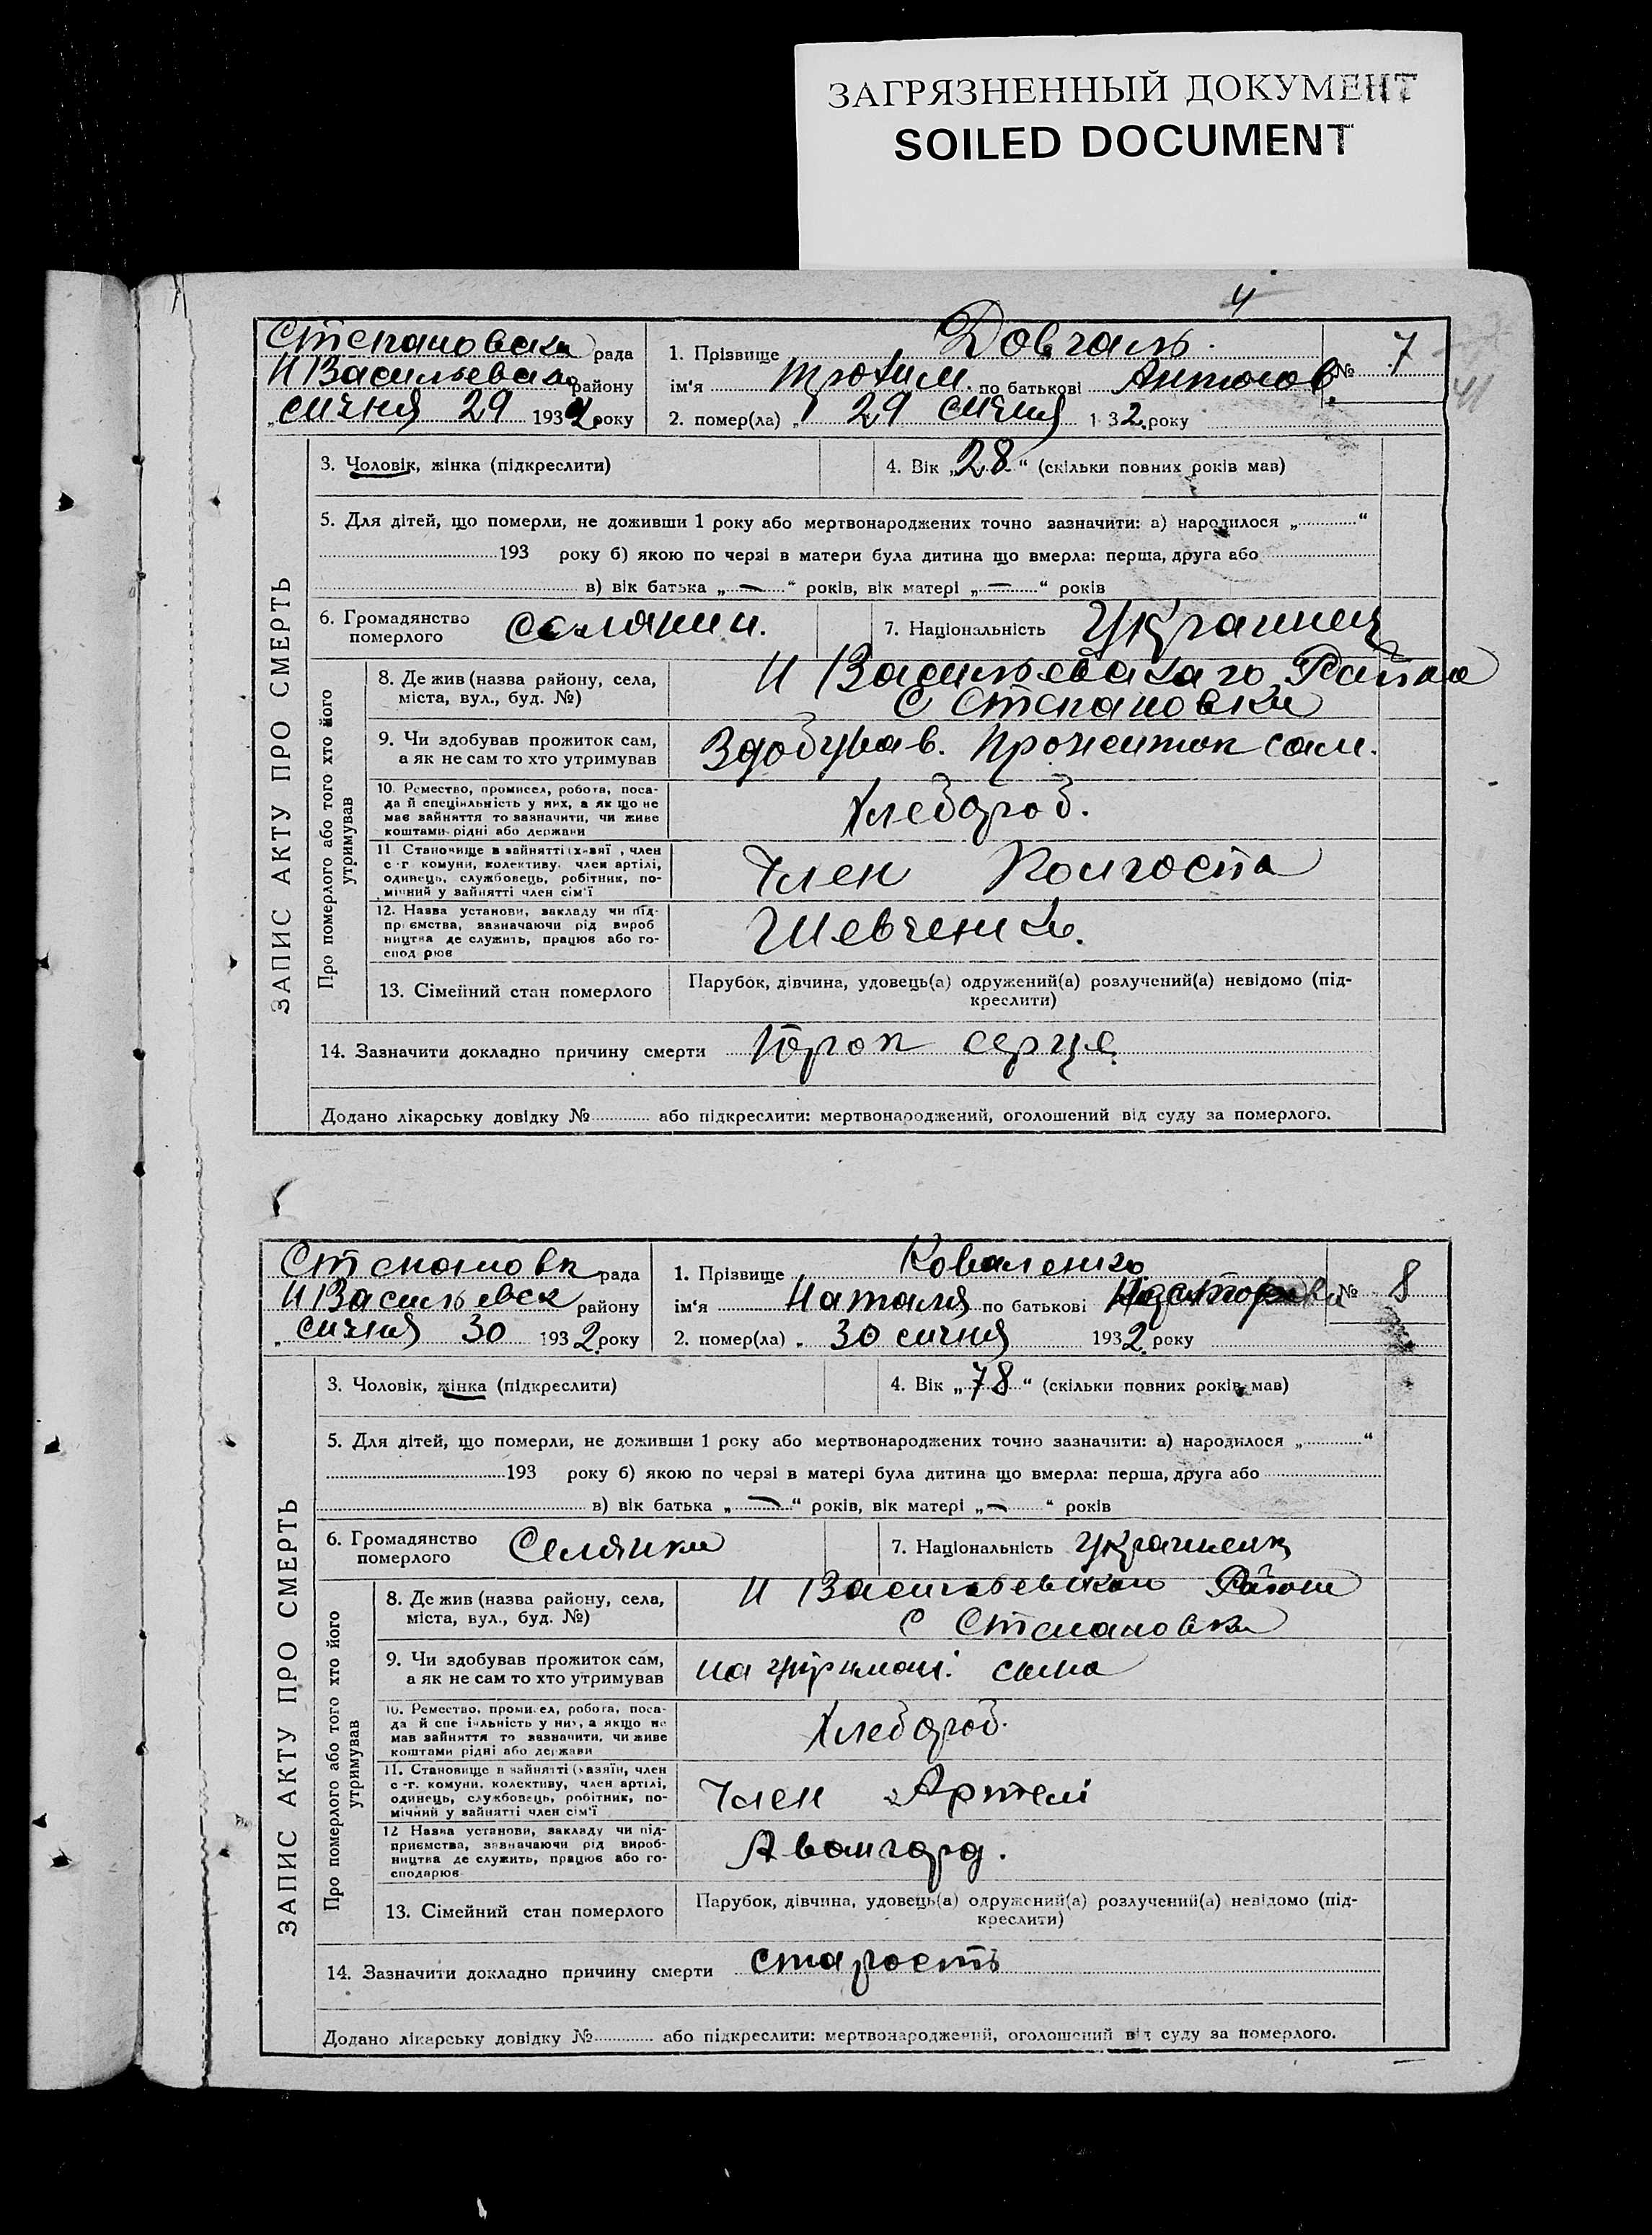 ЗАГРЯЗНЕННЫЙ ДОКУМЕНТ
SOILED DOCUMENT
4
41
Степановска рада
Н Васильевско району
„ сичня 29 1932 року
1. Прізвище Довгаль.
ім'я Трохим. по батькові Антонов.
№ 7
2. помер(ла) „ 29 сичня 1 32. року
ЗАПИС АКТУ ПРО СМЕРТЬ
3. Чоловік, жінка (підкреслити)
4. Вік „28“ (скільки повних років мав)
5. Для дітей, що померли, не доживши 1 року або мертвонароджених точно зазначити: а) народилося „ “
193 року б) якою по черзі в матери була дитина що вмерла: перша, друга або
в) вік батька „ — “ років, вік матері „ — “ років
6. Громадянство померлого Селянин.
7. Національність Украинец
Про померлого або того хто його утримував
8. Де жив (назва району, села,
міста, вул., буд. №)
Н Васильевскаго Район
С Степановки
9. Чи здобував прожиток сам,
а як не сам то хто утримував
Здобував. Прожиток сам.
10. Ремество, промисел, робота, поса-
да й спеціяльність у них, а як що не
має зайняття то зазначити, чи живе
коштами рідні або держави
Хлебороб.
11. Становище в зайнятті (хазяї , член
с-г. комуни, колективу, член артілі,
одинець, службовець, робітник, по-
мічний у зайнятті член сім'ї
Член Колгоспа
12. Назва установи, закладу чи під-
приємства, зазначаючи рід вироб
ництва де служить, працює або го-
спод рює
Шевченка.
13. Сімейний стан померлого
Парубок, дівчина, удовець(а) одружений(а) розлучений(а) невідомо (під-
креслити)
14. Зазначити докладно причину смерти Порок серце
Додано лікарську довідку № або підкреслити: мертвонароджений, оголошений від суду за померлого.
Степановк рада
Н Васильевск району
„ сичня 30 1932. року
1. Прізвище Коваленко
ім'я Наталя по батькові
№ 8
2. помер(ла) „ 30 сичня 1932. року
ЗАПИС АКТУ ПРО СМЕРТЬ
3. Чоловік, жінка (підкреслити)
4. Вік „78“ (скільки повних років мав)
5. Для дітей, що померли, не доживши 1 року або мертвонароджених точно зазначити: а) народилося „ “
193 року б) якою по черзі в матері була дитина що вмерла: перша, друга або
в) вік батька „ — “ років, вік матері „ — “ років
6. Громадянство померлого Селянка
7. Національність Украинец
Про померлого або того хто його утримував
8. Де жив (назва району, села,
міста, вул., буд. №)
Н Васильевскаго Району
С Степановки
9. Чи здобував прожиток сам,
а як не сам то хто утримував
на утримані сина
10. Ремество, промисел, робота, поса-
да й спеціяльність у них, а якщо не
мав зайняття то зазначити, чи живе
коштами рідні або держави
Хлебороб.
11. Становище в зайнятті (хазяїн, член
с-г. комуни, колективу, член артілі,
одинець, службовець, робітник, по-
мічний у зайнятті член сім'ї
Член Артелі
12 Назва установи, закладу чи під-
приємства, зазначаючи рід вироб-
ництва де служить, працює або го-
сподарює
Авангард.
13. Сімейний стан померлого
Парубок, дівчина, удовець(а) одружений(а) розлучений(а) невідомо (під-
креслити)
14. Зазначити докладно причину смерти старость
Додано лікарську довідку № або підкреслити: мертвонароджений, оголошений від суду за померлого.